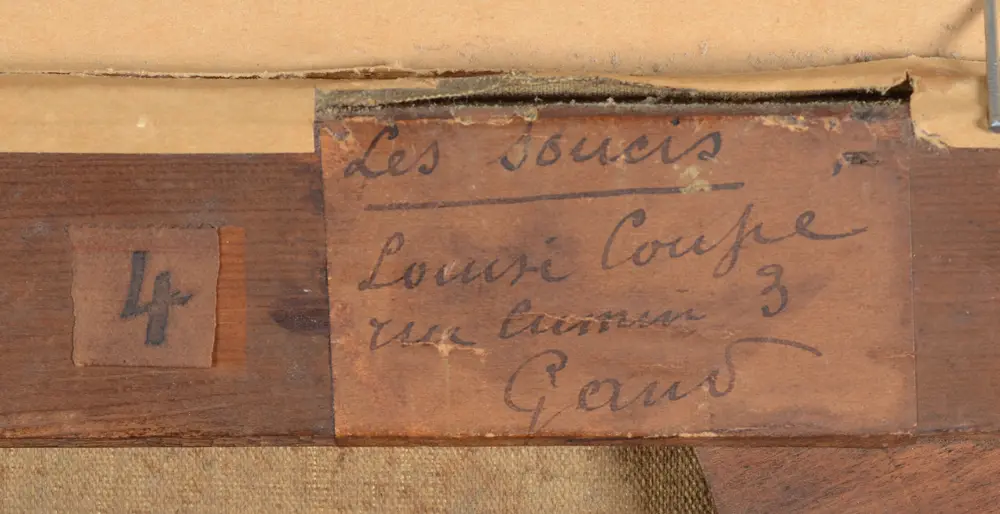 4
Les Soucis
Louise Coupe
rue Cumin 3
Gand